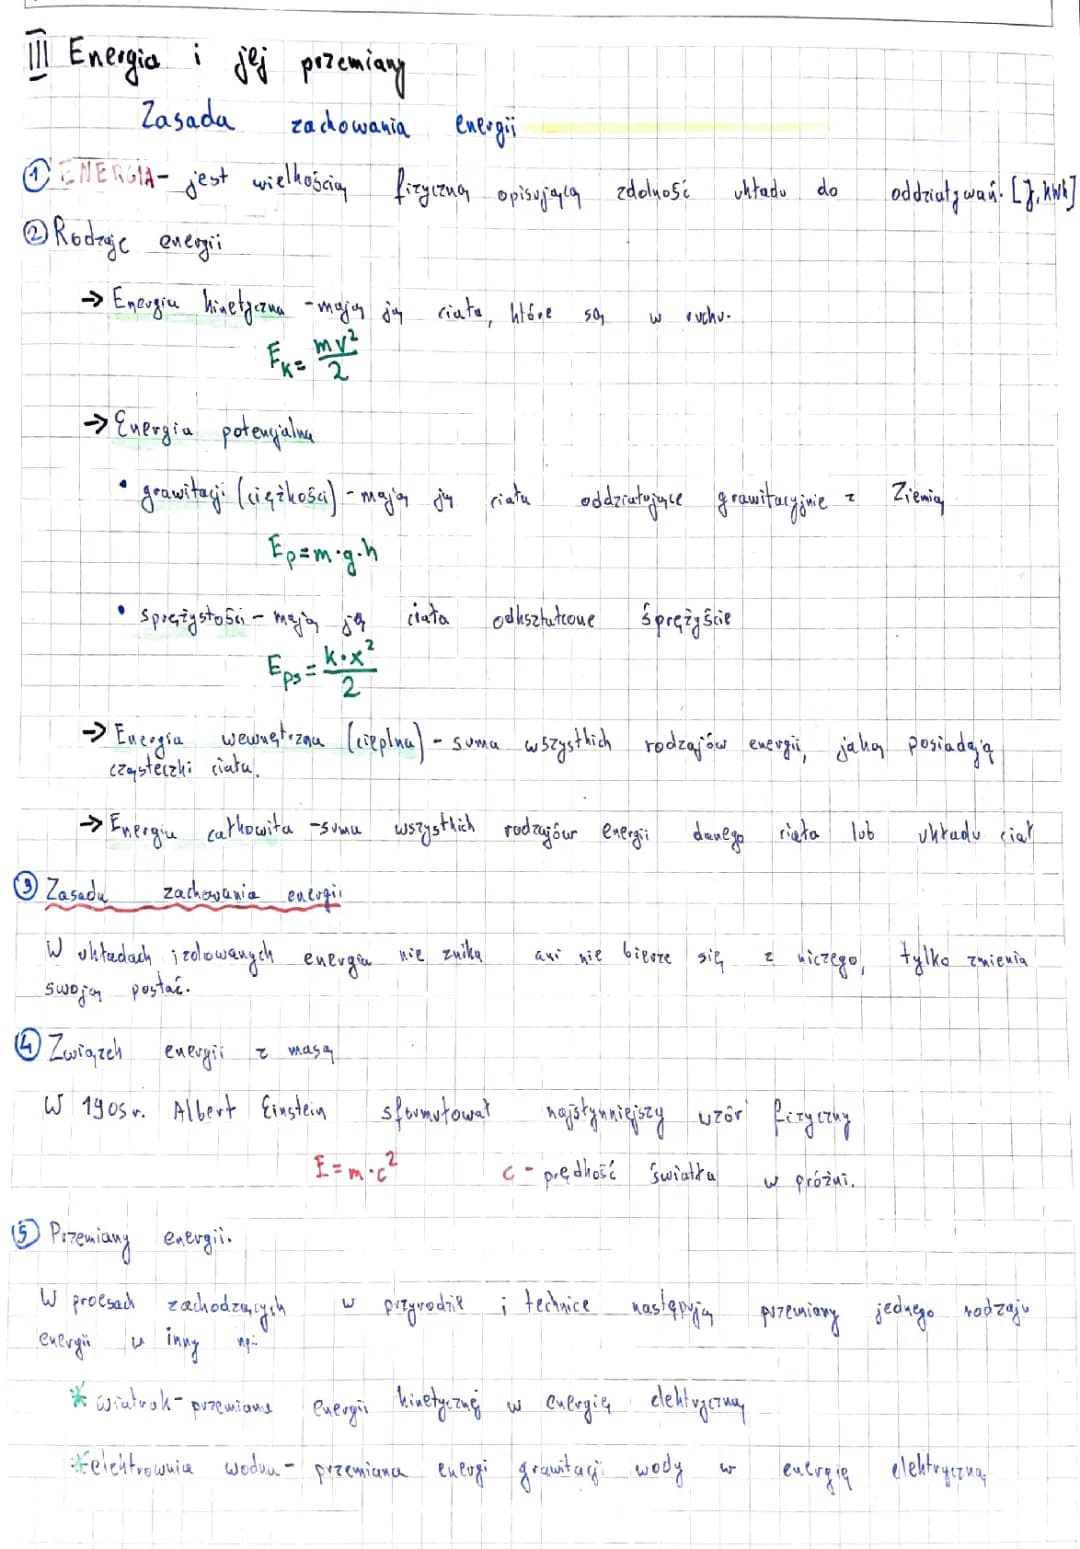 III Energia i jej przemiany
Zasada zachowania energii
① ENERGIA - jest wielkością fizyczną opisującą zdolność układu do oddziaływań. [J, kWh]
② Rodzaje energii
→ Energia kinetyczna - mają ją ciała, które są w ruchu.
E_K = mv²/2
→ Energia potencjalna
• grawitacji (ciężkości) - mają ją ciała oddziałujące grawitacyjnie z Ziemią
E_p = m·g·h
• sprężystości - mają ją ciała odkształcone sprężyście
E_ps = k·x²/2
→ Energia wewnętrzna (cieplna) - suma wszystkich rodzajów energii, jaką posiadają
cząsteczki ciała.
→ Energia całkowita - suma wszystkich rodzajów energii danego ciała lub układu ciał
③ Zasada zachowania energii
W układach izolowanych energia nie znika ani nie bierze się z niczego, tylko zmienia
swoją postać.
④ Związek energii z masą
W 1905 r. Albert Einstein sformułował najsłynniejszy wzór fizyczny
E = m·c² c - prędkość światła w próżni.
⑤ Przemiany energii.
W proesach zachodzących w przyrodzie i technice następują przemiany jednego rodzaju
energii w inny np:
* wiatrak - przemiana energii kinetycznej w energię elektryczną
* elektrownia wodna - przemiana energi grawitacji wody w energię elektryczną.